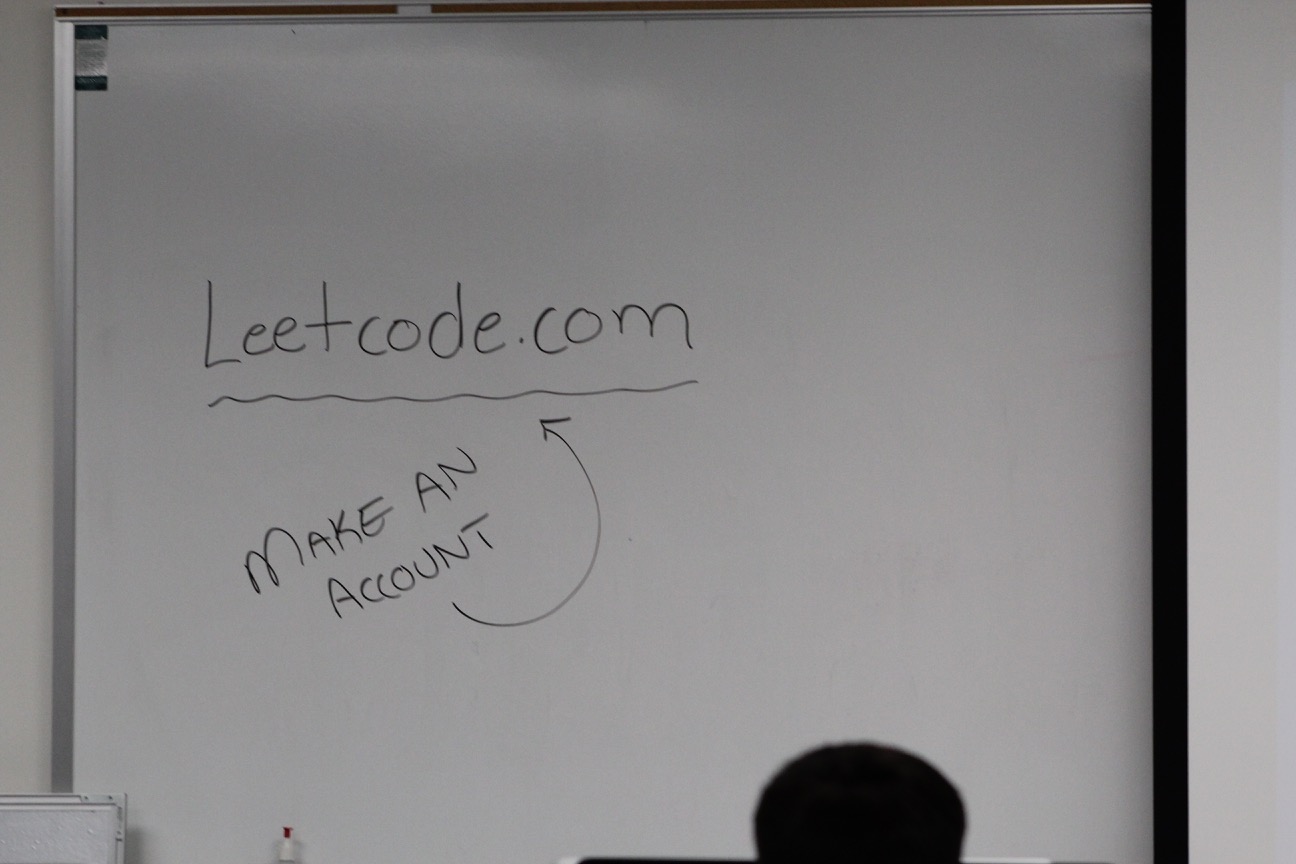 Leetcode.com
MAKE AN
ACCOUNT